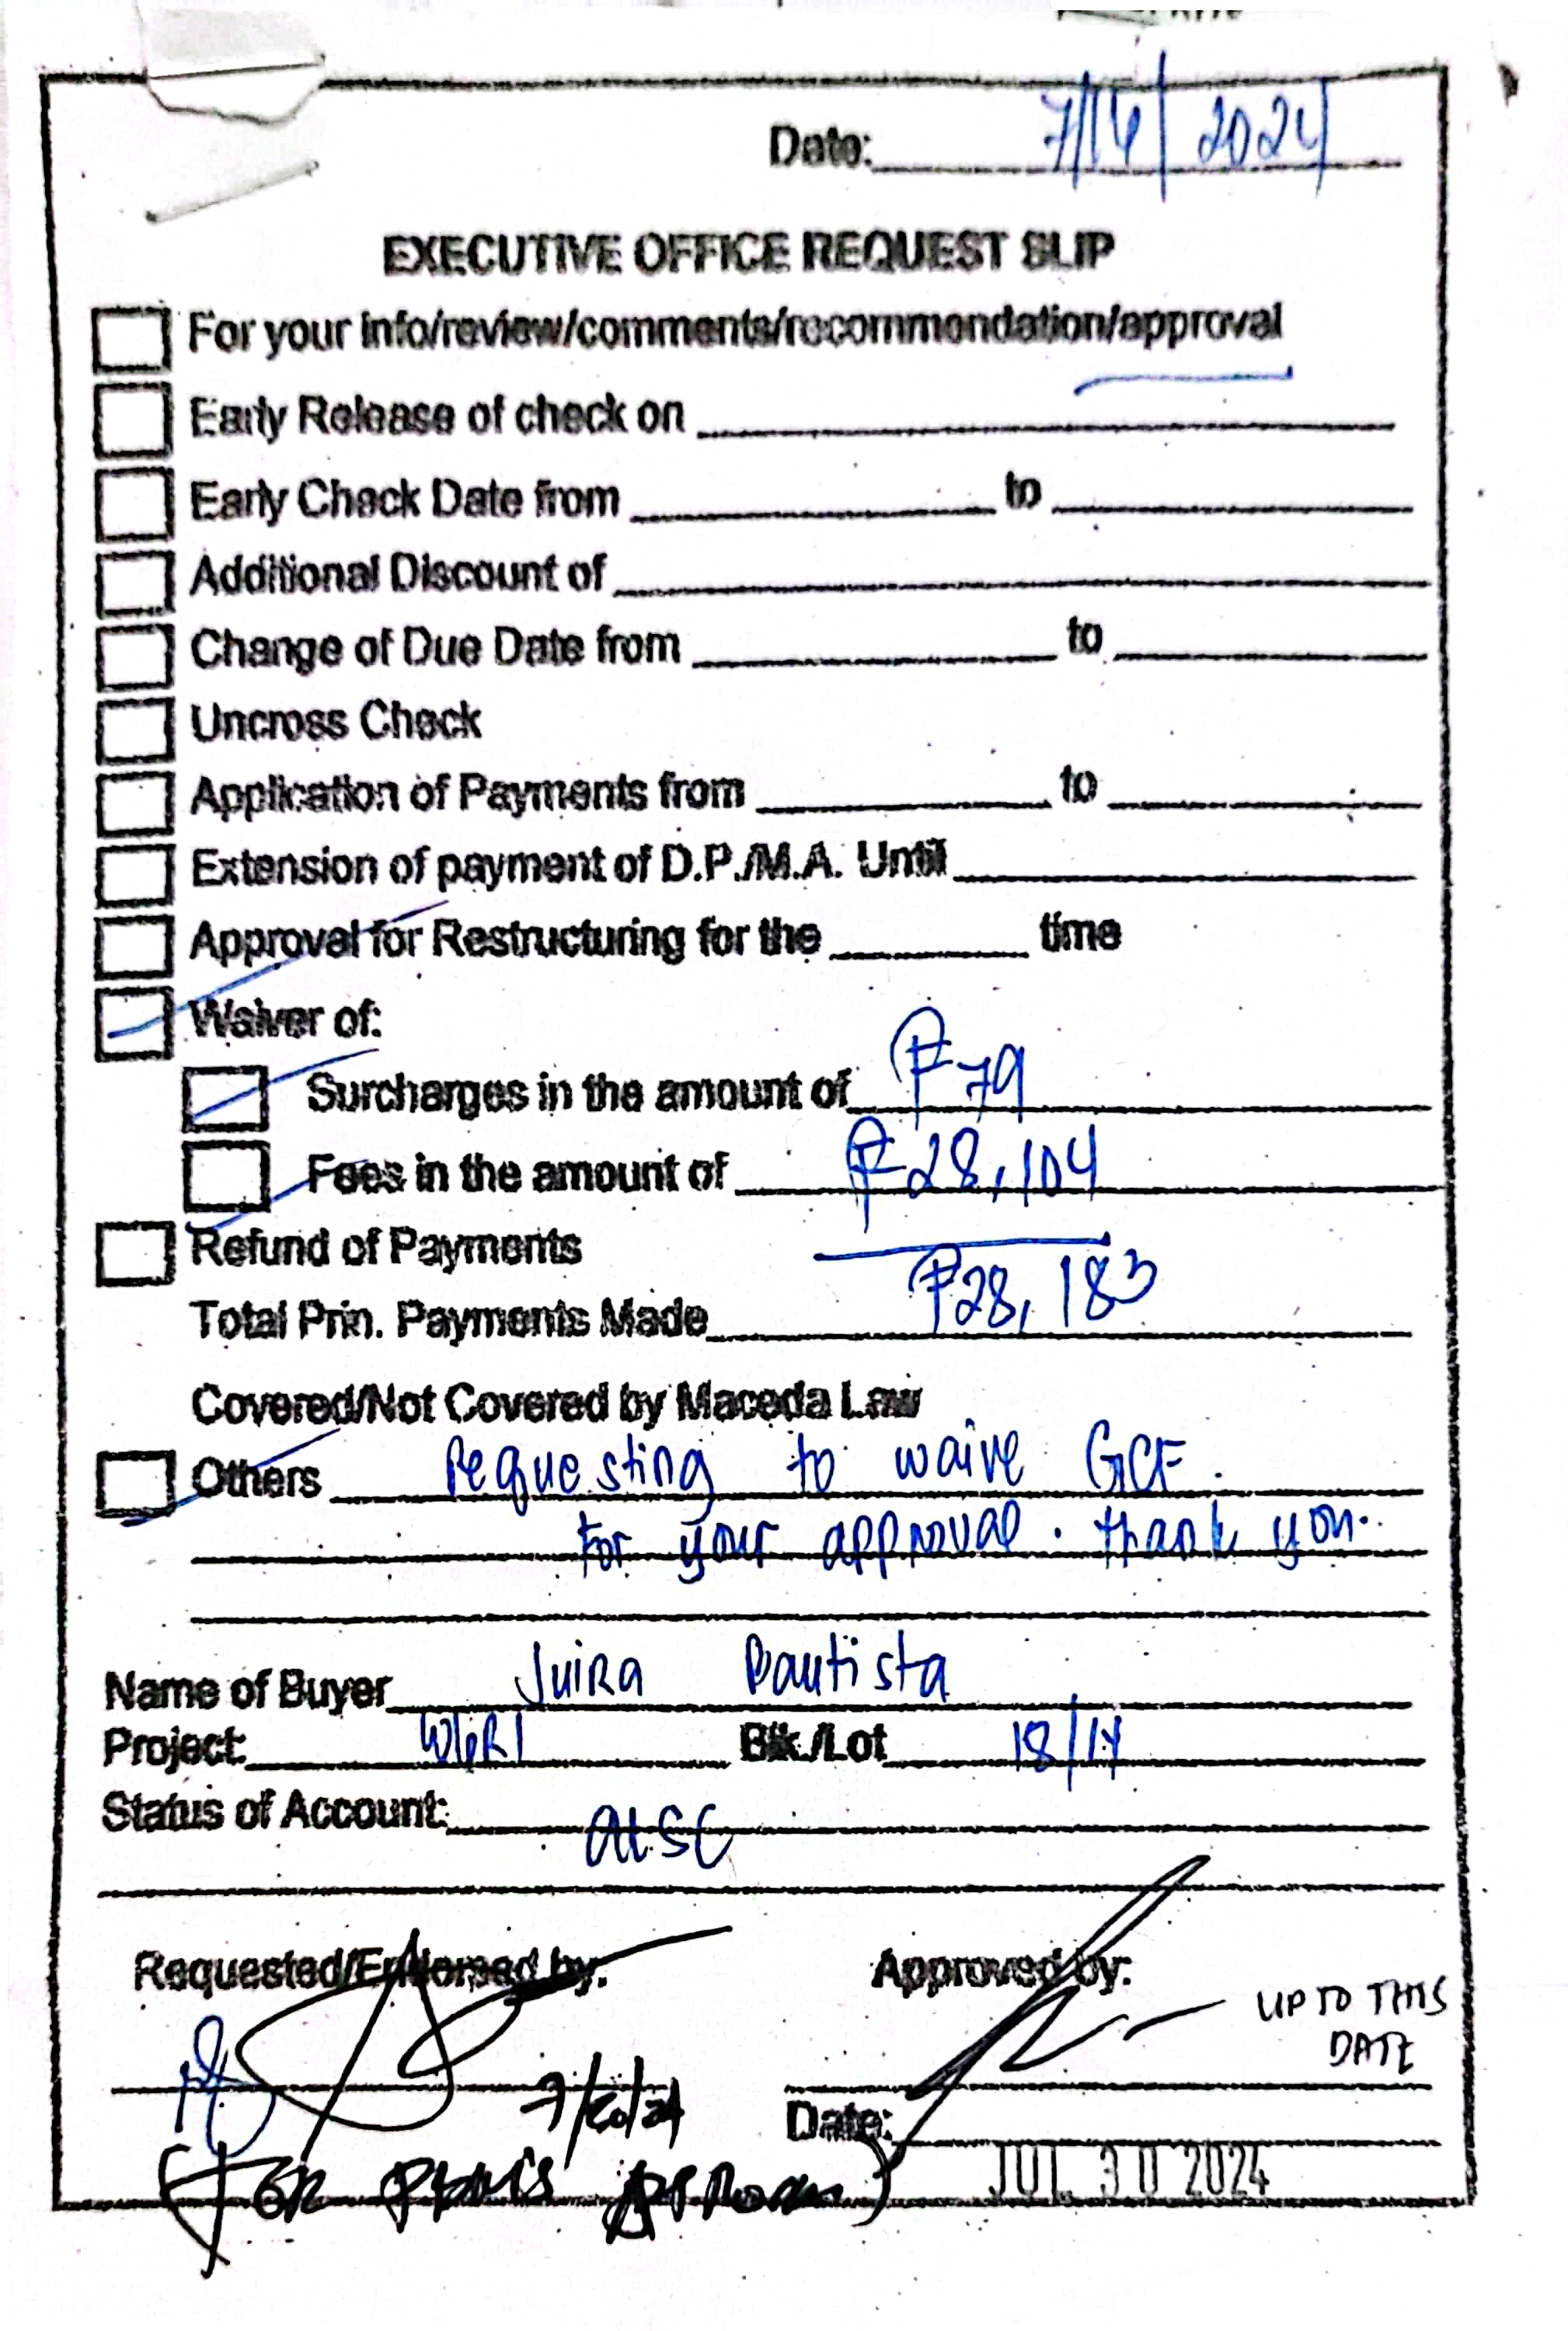 Date: 7/16/2024
EXECUTIVE OFFICE REQUEST SLIP
For your info/review/comments/recommendation/approval
Early Release of check on
Early Check Date from to
Additional Discount of
Change of Due Date from to
Uncross Check
Application of Payments from to
Extension of payment of D.P./M.A. Until
Approval for Restructuring for the time
Waiver of:
Surcharges in the amount of ₱79
Fees in the amount of ₱28,104
Refund of Payments
Total Prin. Payments Made ₱28,183
Covered/Not Covered by Maceda Law
Others Requesting to waive GCF.
For your approval. Thank you.
Name of Buyer Juira Bautista
Project: WGR1 Blk./Lot 18/14
Status of Account:
Requested/Endorsed by: Approved by:
UP TO THIS
DATE
7/20/24
Date:
JUL 30 2024
(FOR approval)